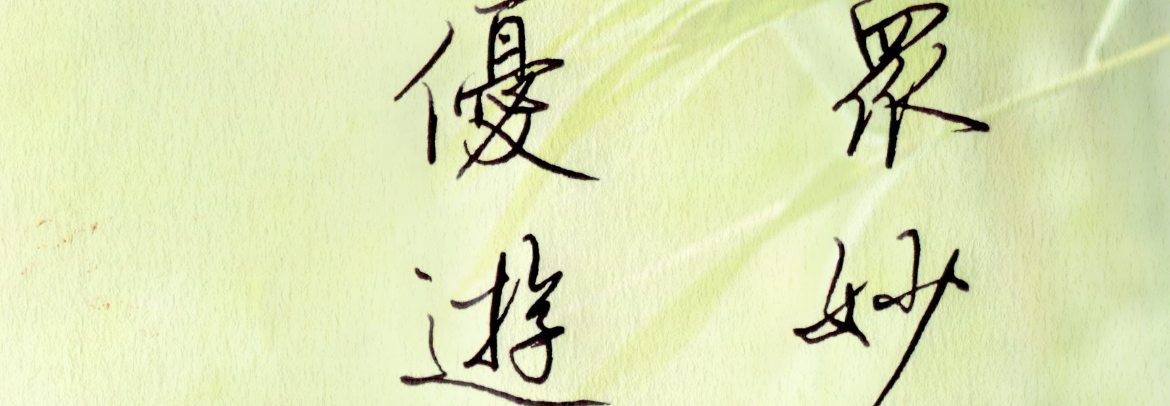 眾妙
優遊